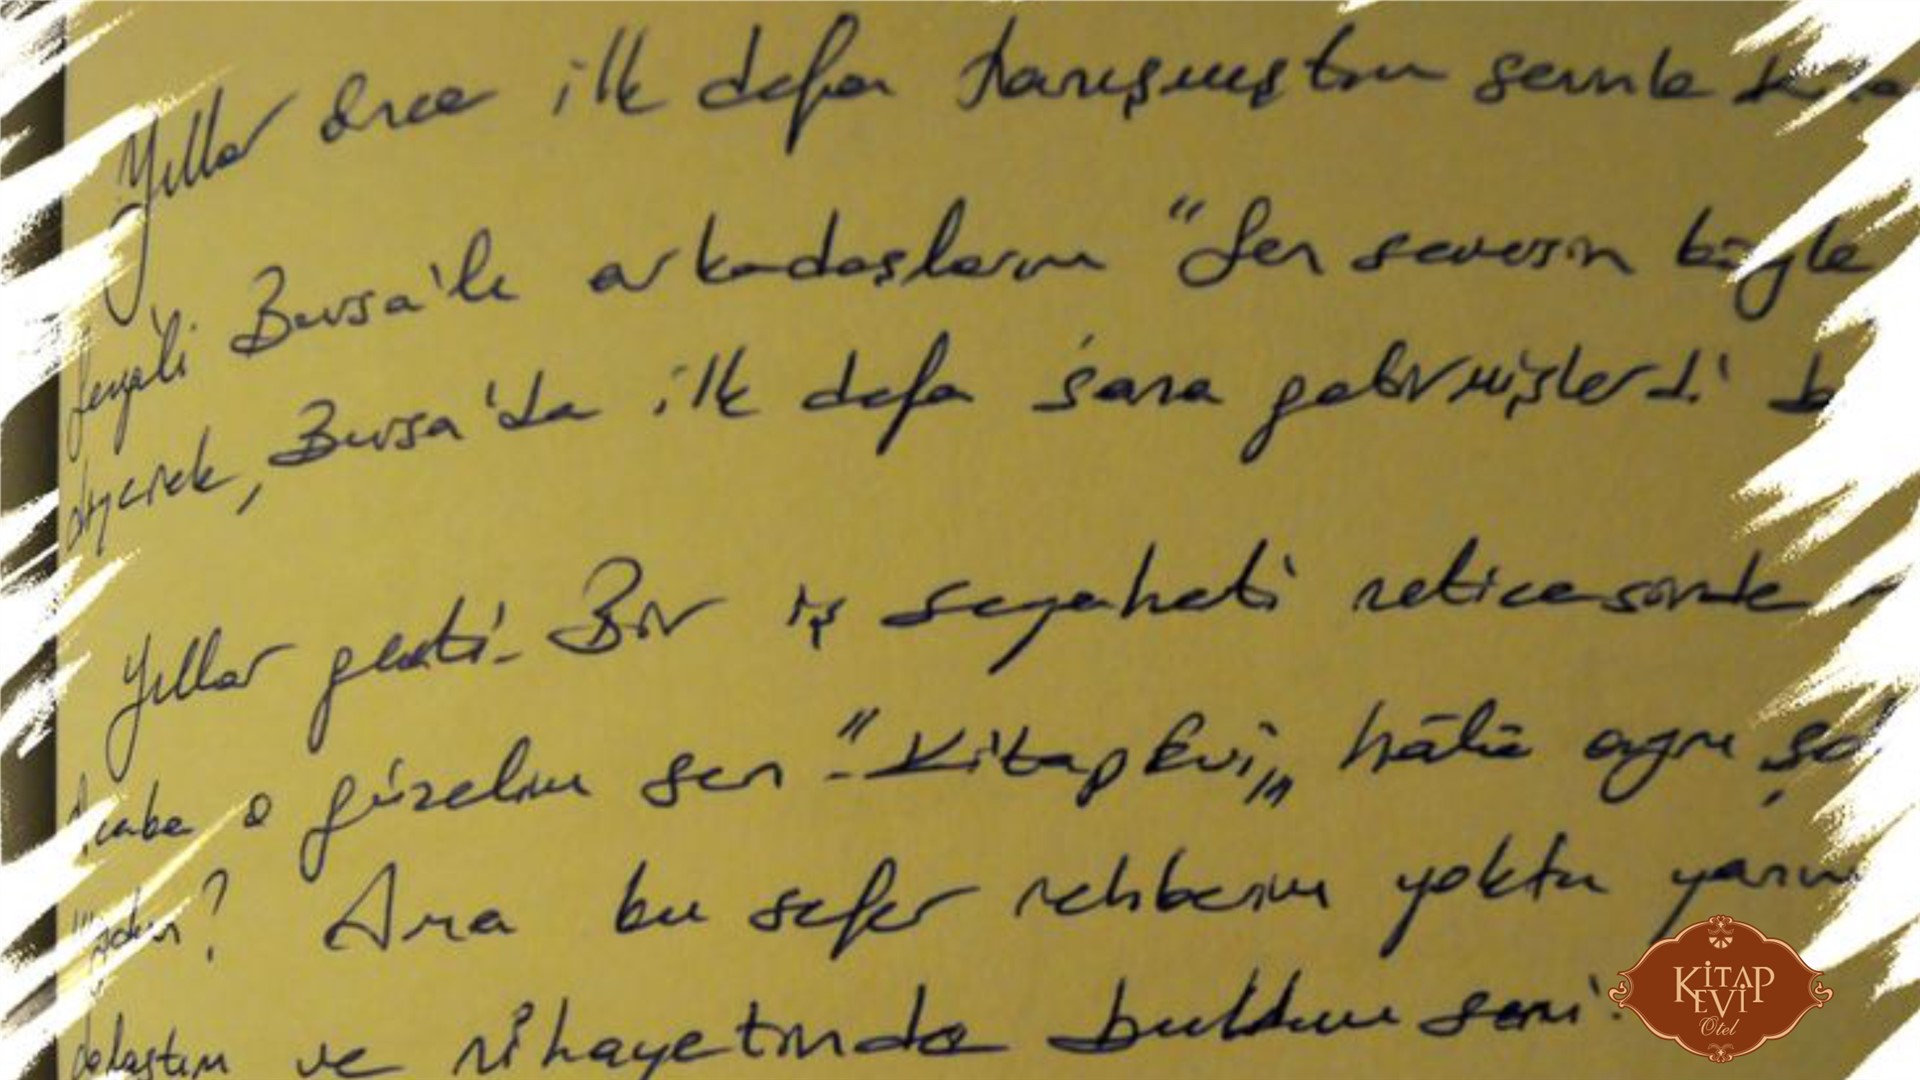 Yıllar önce ilk defa tanışmıştım seninle
Bursa'lı arkadaşlarım "Sen seversin böyle
diyerek, Bursa'da ilk defa sana getirmişlerdi
Yıllar geçti. Bir iş seyahati neticesinde
Acaba o güzelim sen "Kitap Evi" hâlâ aynı
? Ama bu sefer rehberim yoktu
dolaştım ve nihayetinde buldum seni.
KİTAP
EVİ
Otel